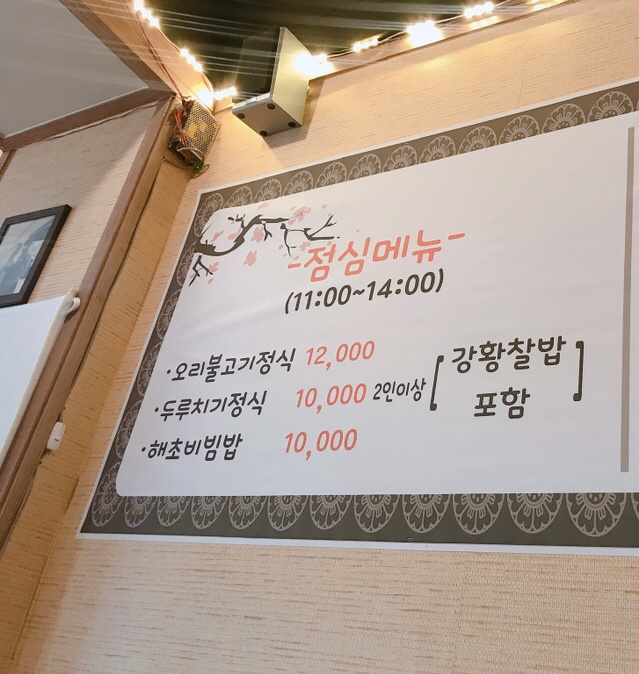 -점심메뉴-
(11:00~14:00)
·오리불고기정식 12,000
·두루치기정식 10,000 2인이상 [강황찰밥 포함]
·해초비빔밥 10,000